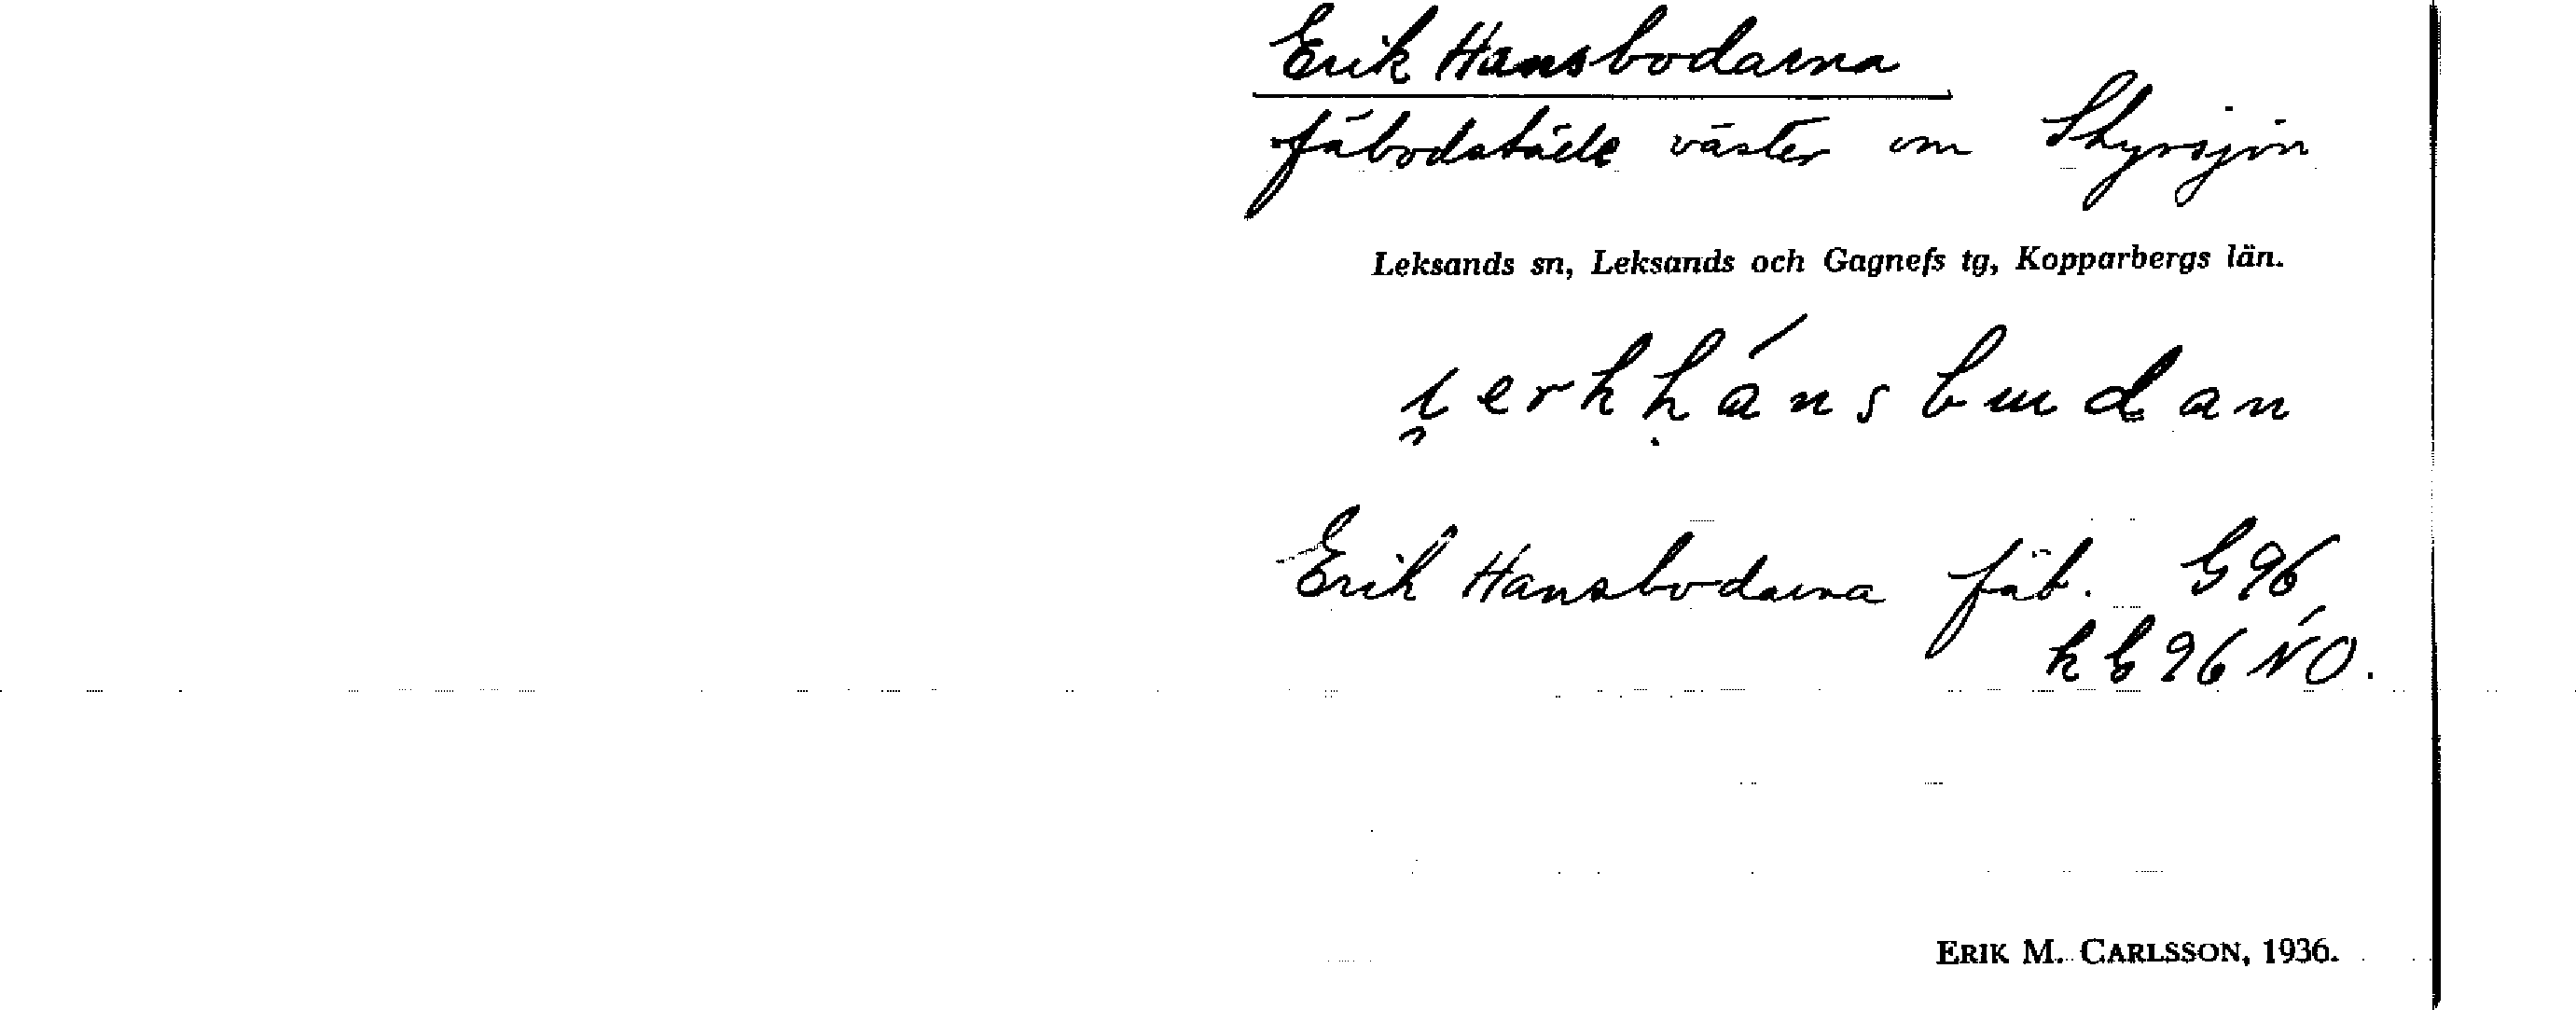 Erik Hansbodarna
fäbodställe väster om Styrsjön
Leksands sn, Leksands och Gagnefs tg, Kopparbergs län.
i̯erkḥánsbudan
Erik Hansbodarna fäb. G96
k G 96 NO.
ERIK M. CARLSSON, 1936.